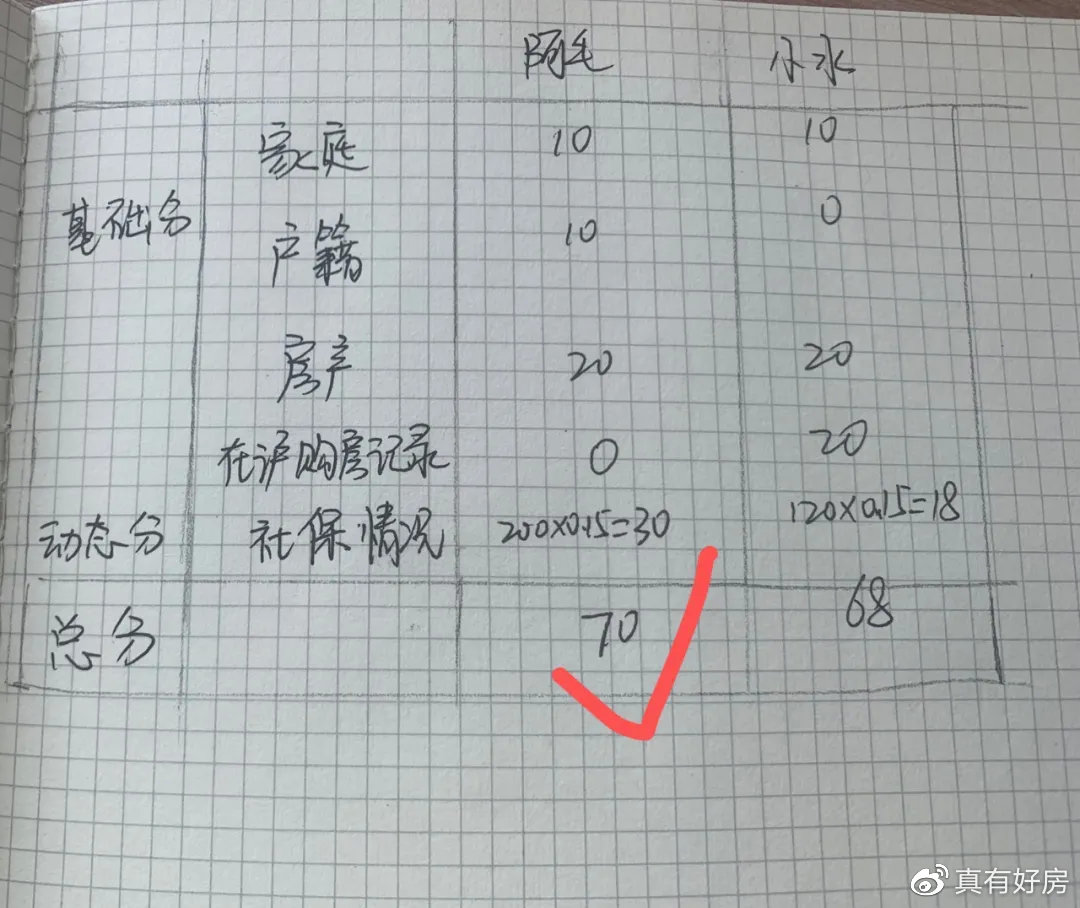 阿毛 小水
家庭 10 10
基础分 户籍 10 0
房产 20 20
在沪购房记录 0 20
动态分 社保情况 200×0.15=30 120×0.15=18
总分 70 68
真有好房